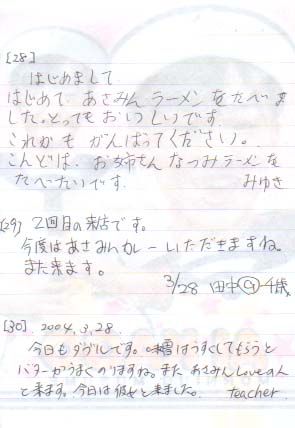 [28]
はじめまして
はじめて あさみん ラーメン をたべま
した。とっても おいしいです。
これからも がんばってください。
こんどは、お姉さん なつみラーメンを
たべたいです。 みゆき
[29] 2回目の来店です。
今度はあさみんカレーいただきますね。
また来ます。
3/28 田中 ⑨千歳
[30]. 2004.3.28.
今日もダブルです。味噌はうすくしてもらうと
バターがうまくのりますね。また あさみんLoveな人
と来ます。今日は彼女と来ました。 teacher.